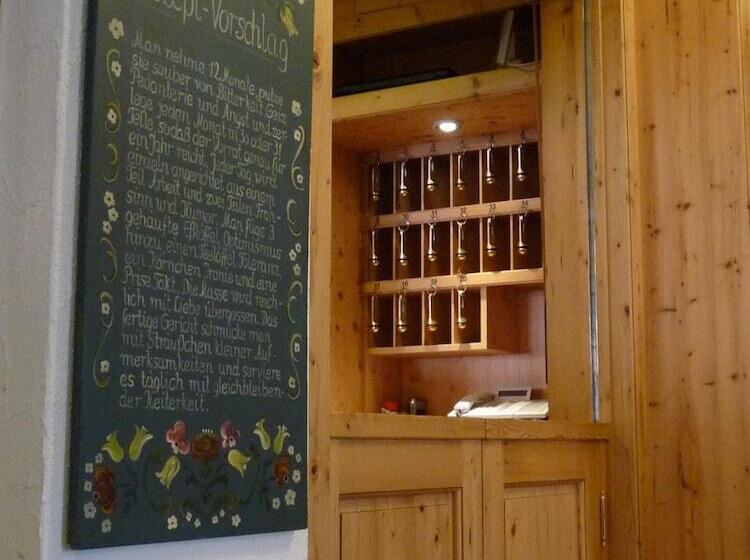 Rezept-Vorschlag
Man nehme 12 Monate, putze
sie sauber von Bitterkeit, Geiz,
Pedanterie und Angst und zer-
lege jeden Monat in 30 oder 31
Teile, sodaß der Vorrat genau für
ein Jahr reicht. Jeder Tag wird
einzeln angerichtet aus einem
Teil Arbeit und zwei Teilen Froh-
sinn und Humor. Man füge 3
gehäufte Eßlöffel Optimismus
hinzu, einen Teelöffel Toleranz,
ein Körnchen Ironie und eine
Prise Takt. Die Masse wird reich-
lich mit Liebe übergossen. Das
fertige Gericht schmücke man
mit Sträußchen kleiner Auf-
merksamkeiten und serviere
es täglich mit gleichbleiben-
der Heiterkeit.